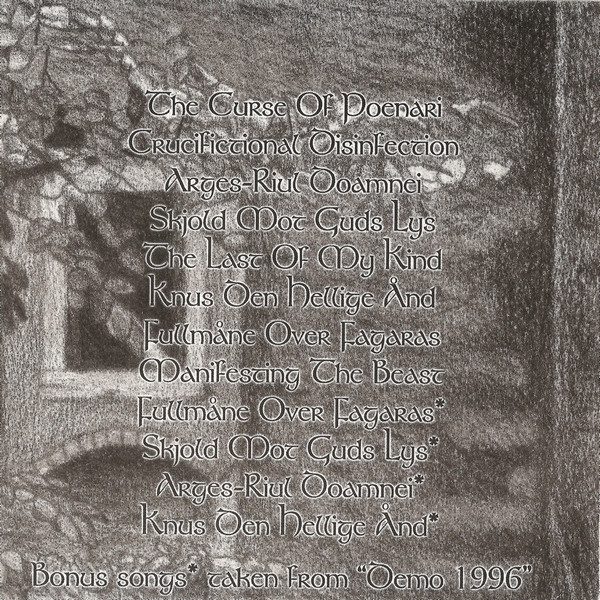 The Curse Of Poenari
Crucifictional Disinfection
Arges-Riul Doamnei
Skjold Mot Guds Lys
The Last Of My Kind
Knus Den Hellige Ånd
Fullmåne Over Fagaras
Manifesting The Beast
Fullmåne Over Fagaras*
Skjold Mot Guds Lys*
Arges-Riul Doamnei*
Knus Den Hellige Ånd*
Bonus songs* taken from "Demo 1996"